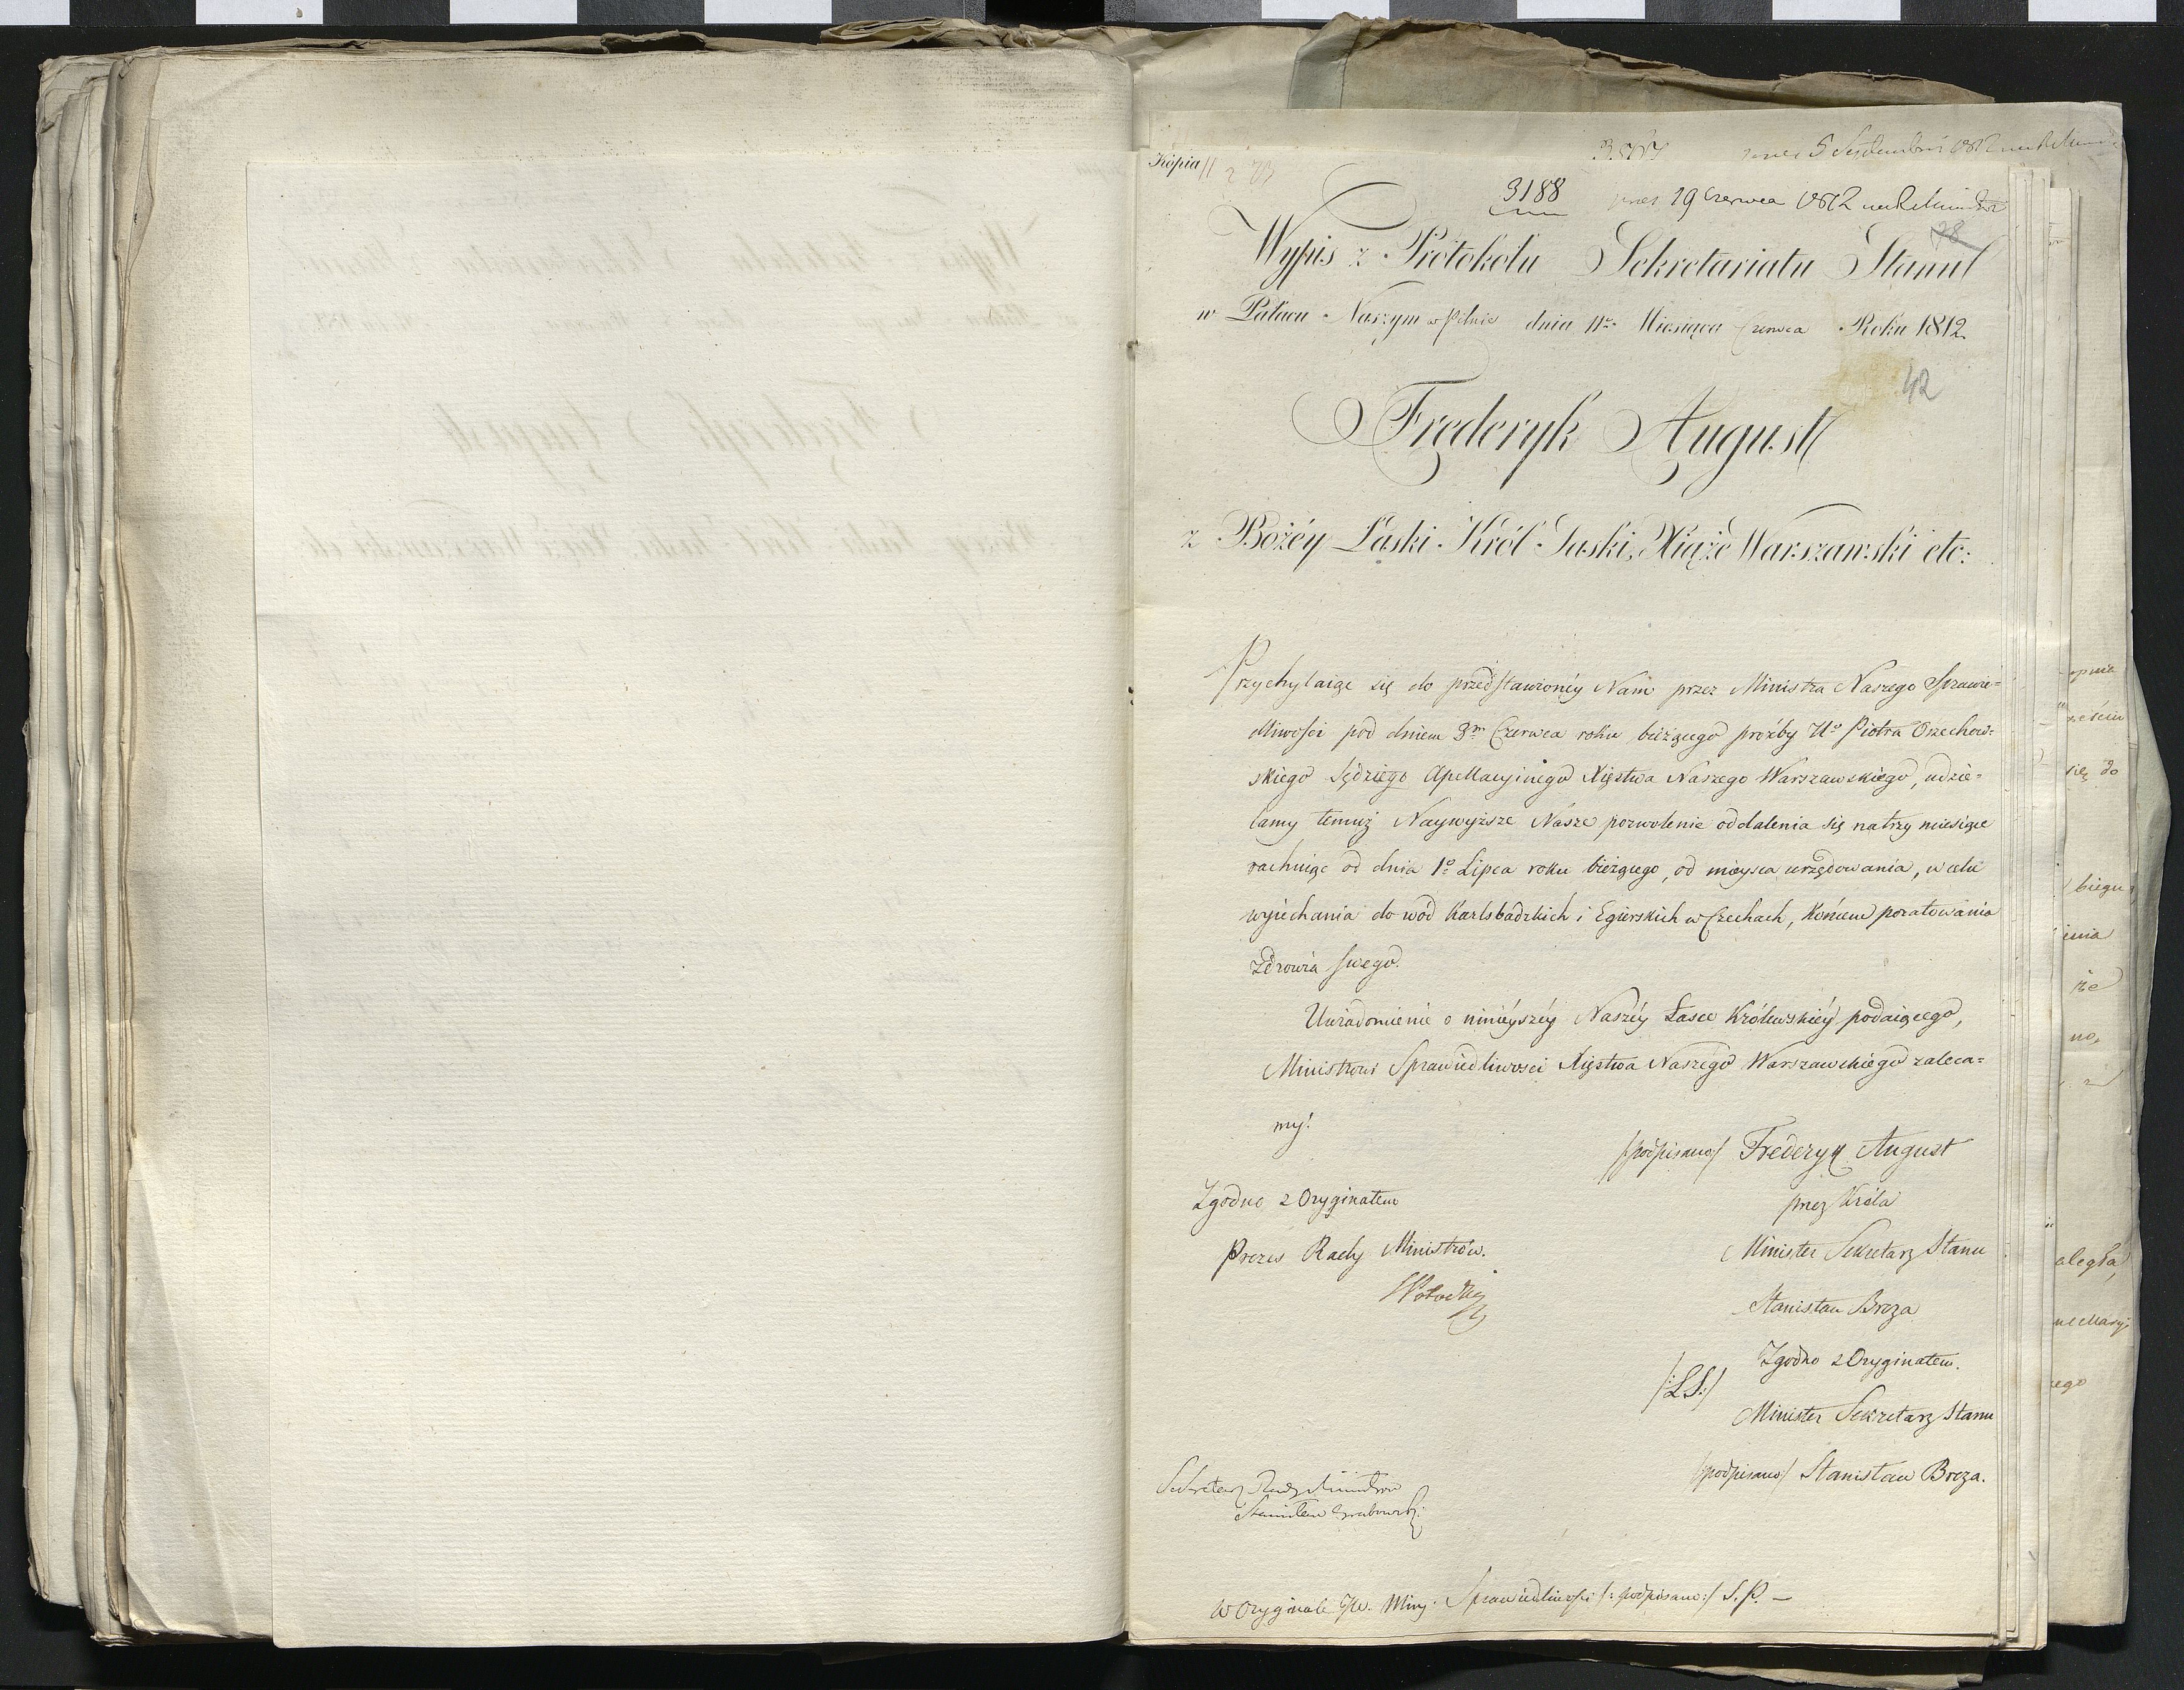 Kopia
5 Septembri 1812
3188 19 Czerwca 1812
78
Wypis z Protokołu Sekretariatu Stanu
w Pałacu Naszym w Pilnic dnia 11go Miesiąca Czerwca Roku 1812
42
Fryderyk August
z Bożéy Łaski Król Saski, Xiąże Warszawski etc:
Przychylaiąc się do przedstawionéy Nam przez Ministra Naszego Sprawie=
dliwości pod dniem 3m Czerwca roku bieżącego proźby Uo Piotra Orzechow=
skiego Sędziego Apellacyinego Xięstwa Naszego Warszawskiego, udzie=
lamy temuż Naywyższe Nasze pozwolenie oddalenia się na trzy miesiące
rachuiąc od dnia 1o Lipca roku bieżącego, od mieysca urzędowania, w celu
wyiechania do wód Karlsbadzkich i Egierskich w Czechach, końcem poratowania
zdrowia swego.
Uwiadomienie o ninieyszéy Naszéy Łasce Królewskiéy podaiącego,
Ministrowi Sprawiedliwości Xięstwa Naszego Warszawskiego zaleca=
my.
/podpisano/ Frederyk August
Zgodno z Oryginałem
przez Króla
Prezes Rady Ministrów.
Minister Sekretarz Stanu
Stanisław Breza
Zgodno z Oryginałem.
/:LS:/
Minister Sekretarz Stanu
/podpisano/ Stanisław Breza.
Sekretarz Rady Ministrów
Stanisław Grabowski
W Oryginale JW. Minj. Sprawiedliwości /:podpisano:/ S. P. —
się do
biegu
ienia
no,
aległa,